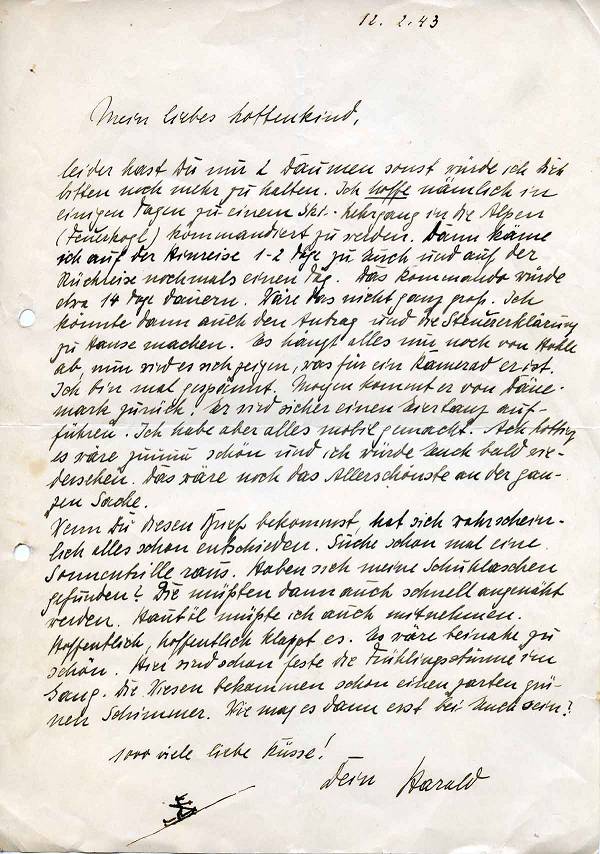 12. 2. 43
Mein liebes Lottenkind,
leider hast Du nur 2 Daumen sonst würde ich Dich
bitten noch mehr zu halten. Ich hoffe nämlich in
einigen Tagen zu einem Ski-Lehrgang in die Alpen
(Feuerkogl) kommandiert zu werden. Dann käme
ich auf der Hinreise 1-2 Tage zu Euch und auf der
Rückreise nochmals einen Tag. Das Kommando würde
etwa 14 Tage dauern. Wäre das nicht ganz groß. Ich
könnte dann auch den Antrag und die Steuererklärung
zu Hause machen. Es hängt alles nur noch von
ab, nun wird es sich zeigen, was für ein Kamerad er ist.
Ich bin mal gespannt. Morgen kommt er von Däne-
mark zurück! Er wird sicher einen Eiertanz auf-
führen. Ich habe aber alles mobil gemacht. Ach
es wäre zu schön und ich würde Euch bald wie-
dersehen. Das wäre noch das Allerschönste an der gan-
zen Sache.
Wenn Du diesen Brief bekommst, hat sich wahrschein-
lich alles schon entschieden. Suche schon mal eine
Sonnenbrille raus. Haben sich meine Schuhlaschen
gefunden? Die müßten dann auch schnell angenäht
werden. Hautöl müßte ich auch mitnehmen.
Hoffentlich, hoffentlich klappt es. Es wäre beinahe zu
schön. Hier sind schon feste die Frühlingsstürme im
Gang. Die Wiesen bekommen schon einen zarten grü-
nen Schimmer. Wie mag es dann erst bei Euch sein?
1000 viele liebe Küsse!
Dein Harald